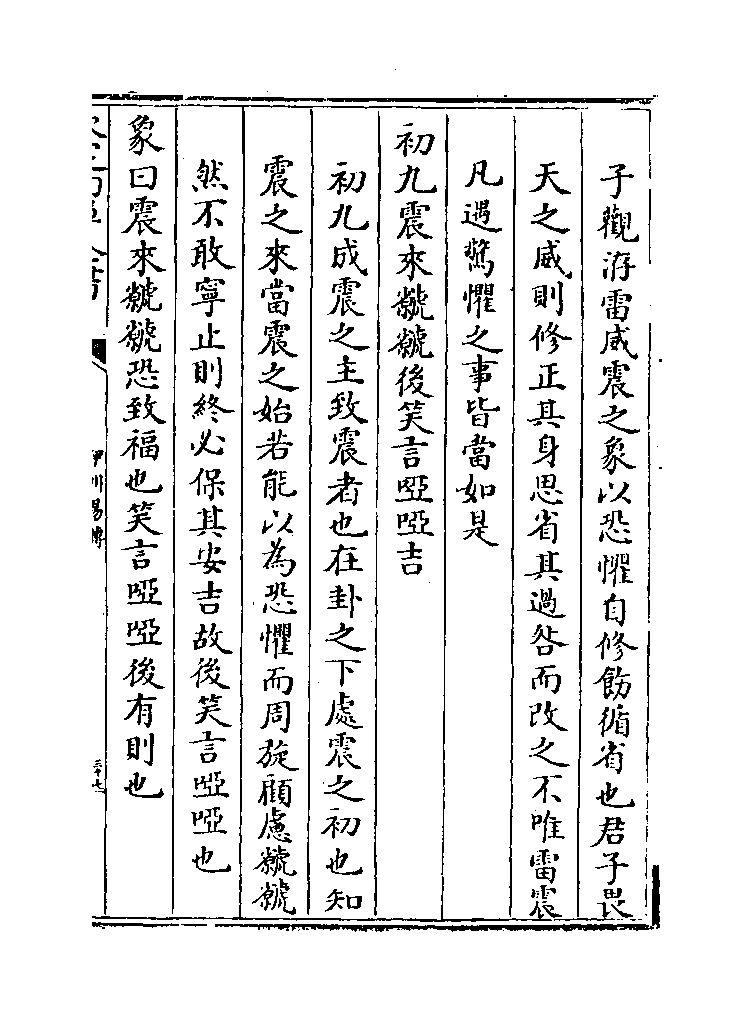 子觀洊雷威震之象以恐懼自修飭循省也君子畏
天之威則修正其身思省其過咎而改之不唯雷震
凡遇驚懼之事皆當如是
初九震來虩虩後笑言啞啞吉
初九成震之主致震者也在卦之下處震之初也知
震之來當震之始若能以為恐懼而周旋顧慮虩虩
然不敢寧止則終必保其安吉故後笑言啞啞也
象曰震來虩虩恐致福也笑言啞啞後有則也
伊川易傳
三十七